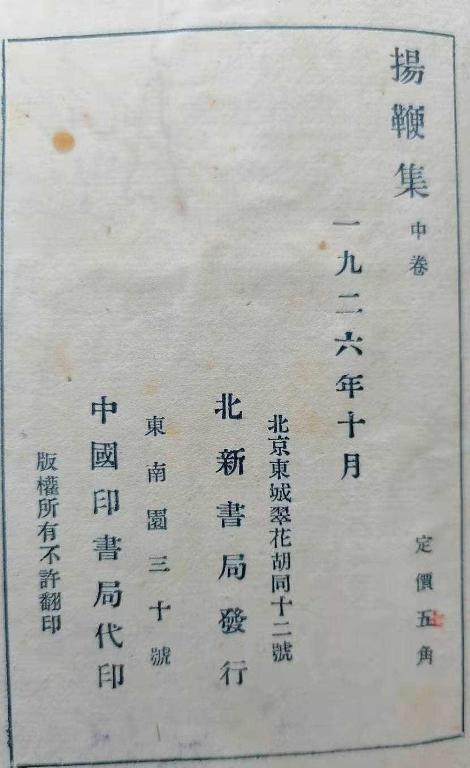 揚鞭集 中卷
定價五角
一九二六年十月
北京東城翠花胡同十二號
北新書局發行
東南園三十號
中國印書局代印
版權所有不許翻印